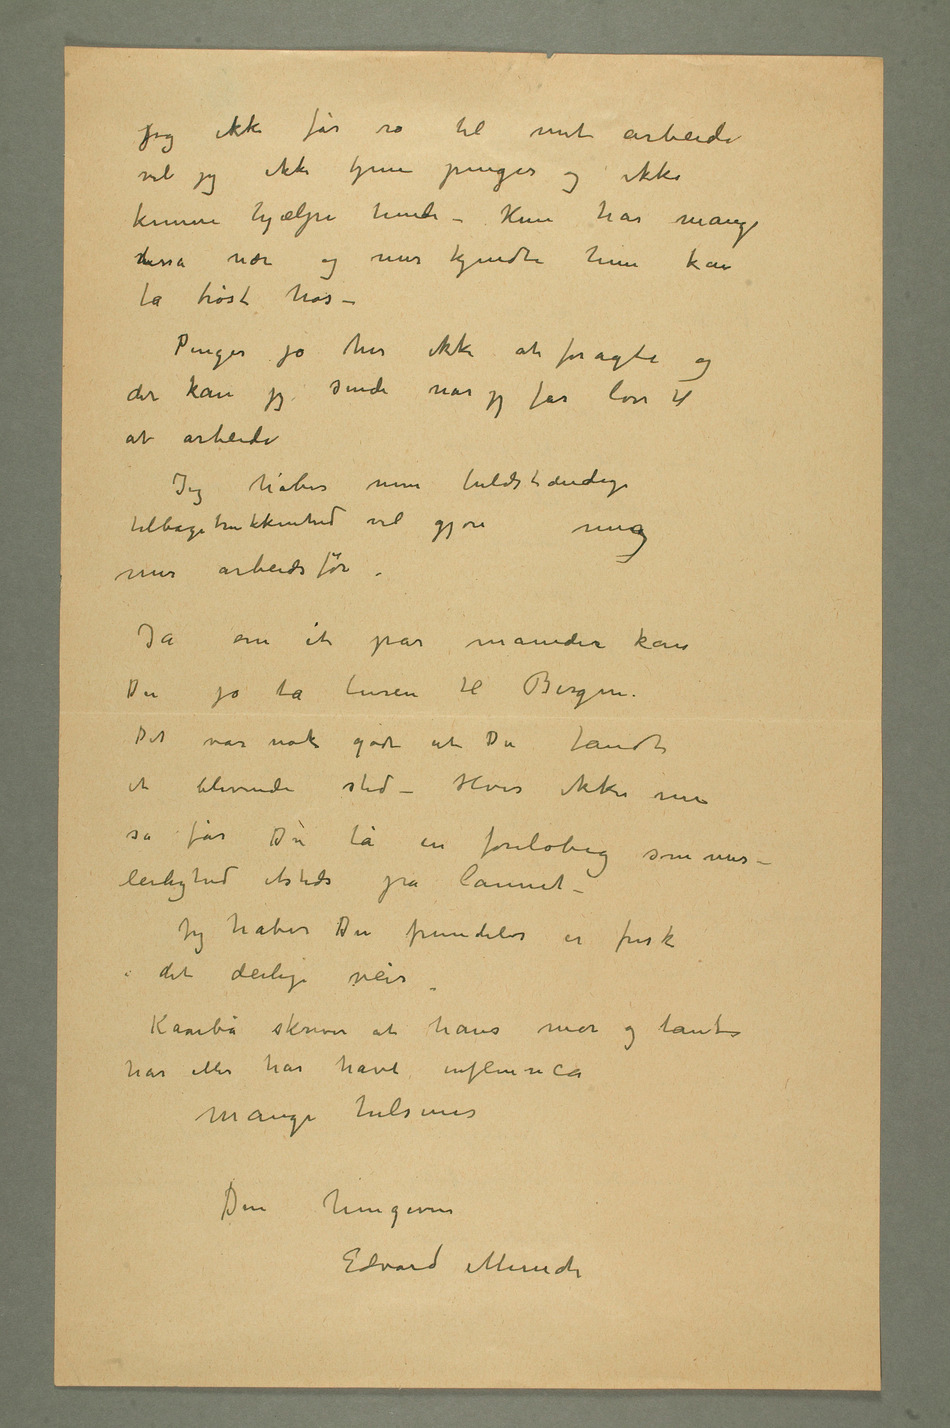 jeg ikke får ro til mit arbeide
vil jeg ikke tjene penger og ikke
kunne hjælpe hende – Hun har mange
nær og mer kjendte hun kan
ta trøst hos –
Penger jo her ikke at foragte og
det kan jeg sende når jeg får lov til
at arbeide
Jeg håber min fuldstændige
tilbagetrukkenhed vil gjøre mig
mer arbeidsfør.
Ja om et par måneder kan
Du jo ta turen til Bergen.
Det var nok godt at Du fandt
et blivende sted – Hvis ikke
så får Du ta en foreløbig sommer–
leilighed etsteds på lannet –
Jeg håber Du fremdeles er frisk
i det deilige veir.
Kaarbø skriver at hans mor og tante
har eller har havt influenca
Mange hilsener
Din hengivne
Edvard Munch